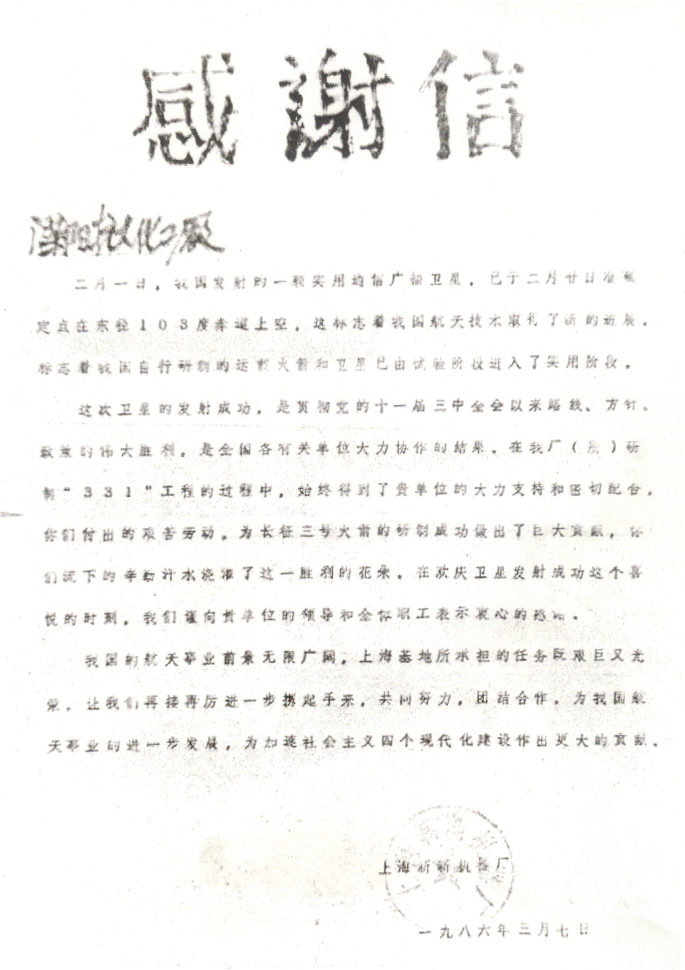 感謝信
二月一日，我国发射的一颗实用通信广播卫星，已于二月廿日准确
定点在东径103度赤道上空，这标志着我国航天技术取得了新的进展，
标志着我国自行研制的运载火箭和卫星已由试验阶段进入了实用阶段。
这次卫星的发射成功，是贯彻党的十一届三中全会以来路线、方针、
政策的伟大胜利，是全国各有关单位大力协作的结果。在我厂（所）研
制“331”工程的过程中，始终得到了贵单位的大力支持和密切配合，
你们付出的艰苦劳动，为长征三号火箭的研制成功做出了巨大贡献，你
们流下的辛勤汁水浇灌了这一胜利的花朵。在欢庆卫星发射成功这个喜
悦的时刻，我们谨向贵单位的领导和全体职工表示衷心的感谢。
我国的航天事业前景无限广阔，上海基地所承担的任务既艰巨又光
荣，让我们再接再厉进一步携起手来，共同努力，团结合作，为我国航
天事业的进一步发展，为加速社会主义四个现代化建设作出更大的贡献。
上海新新机器厂
一九八六年三月七日